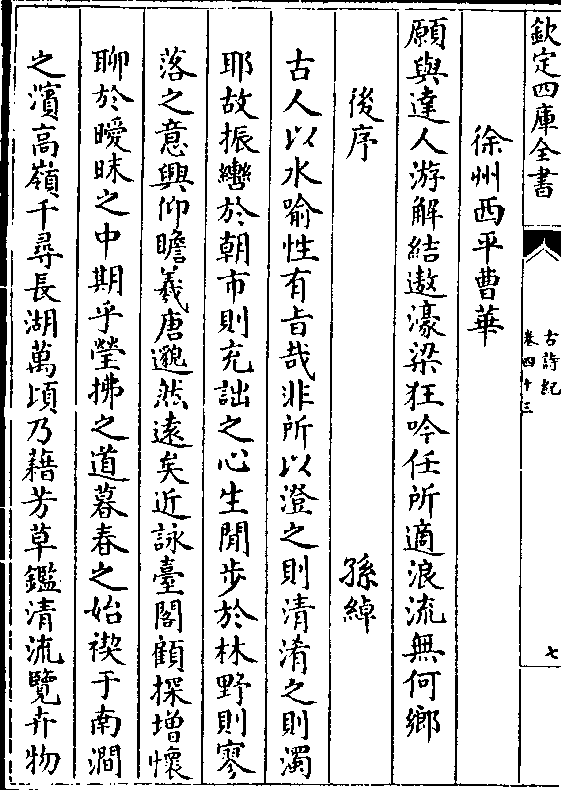 欽定四庫全書
古詩紀
卷四十三
七
徐州西平曹華
願與達人游解結遨濠梁狂吟任所適浪流無何鄉
後序 孫綽
古人以水喻性有旨哉非所以澄之則清淆之則濁
耶故振轡於朝市則充詘之心生閒步於林野則寥
落之意興仰瞻羲唐邈然遠矣近詠臺閣顧探增懷
聊於曖昧之中期乎瑩拂之道暮春之始禊于南澗
之濱高嶺千尋長湖萬頃乃藉芳草鑑清流覽卉物